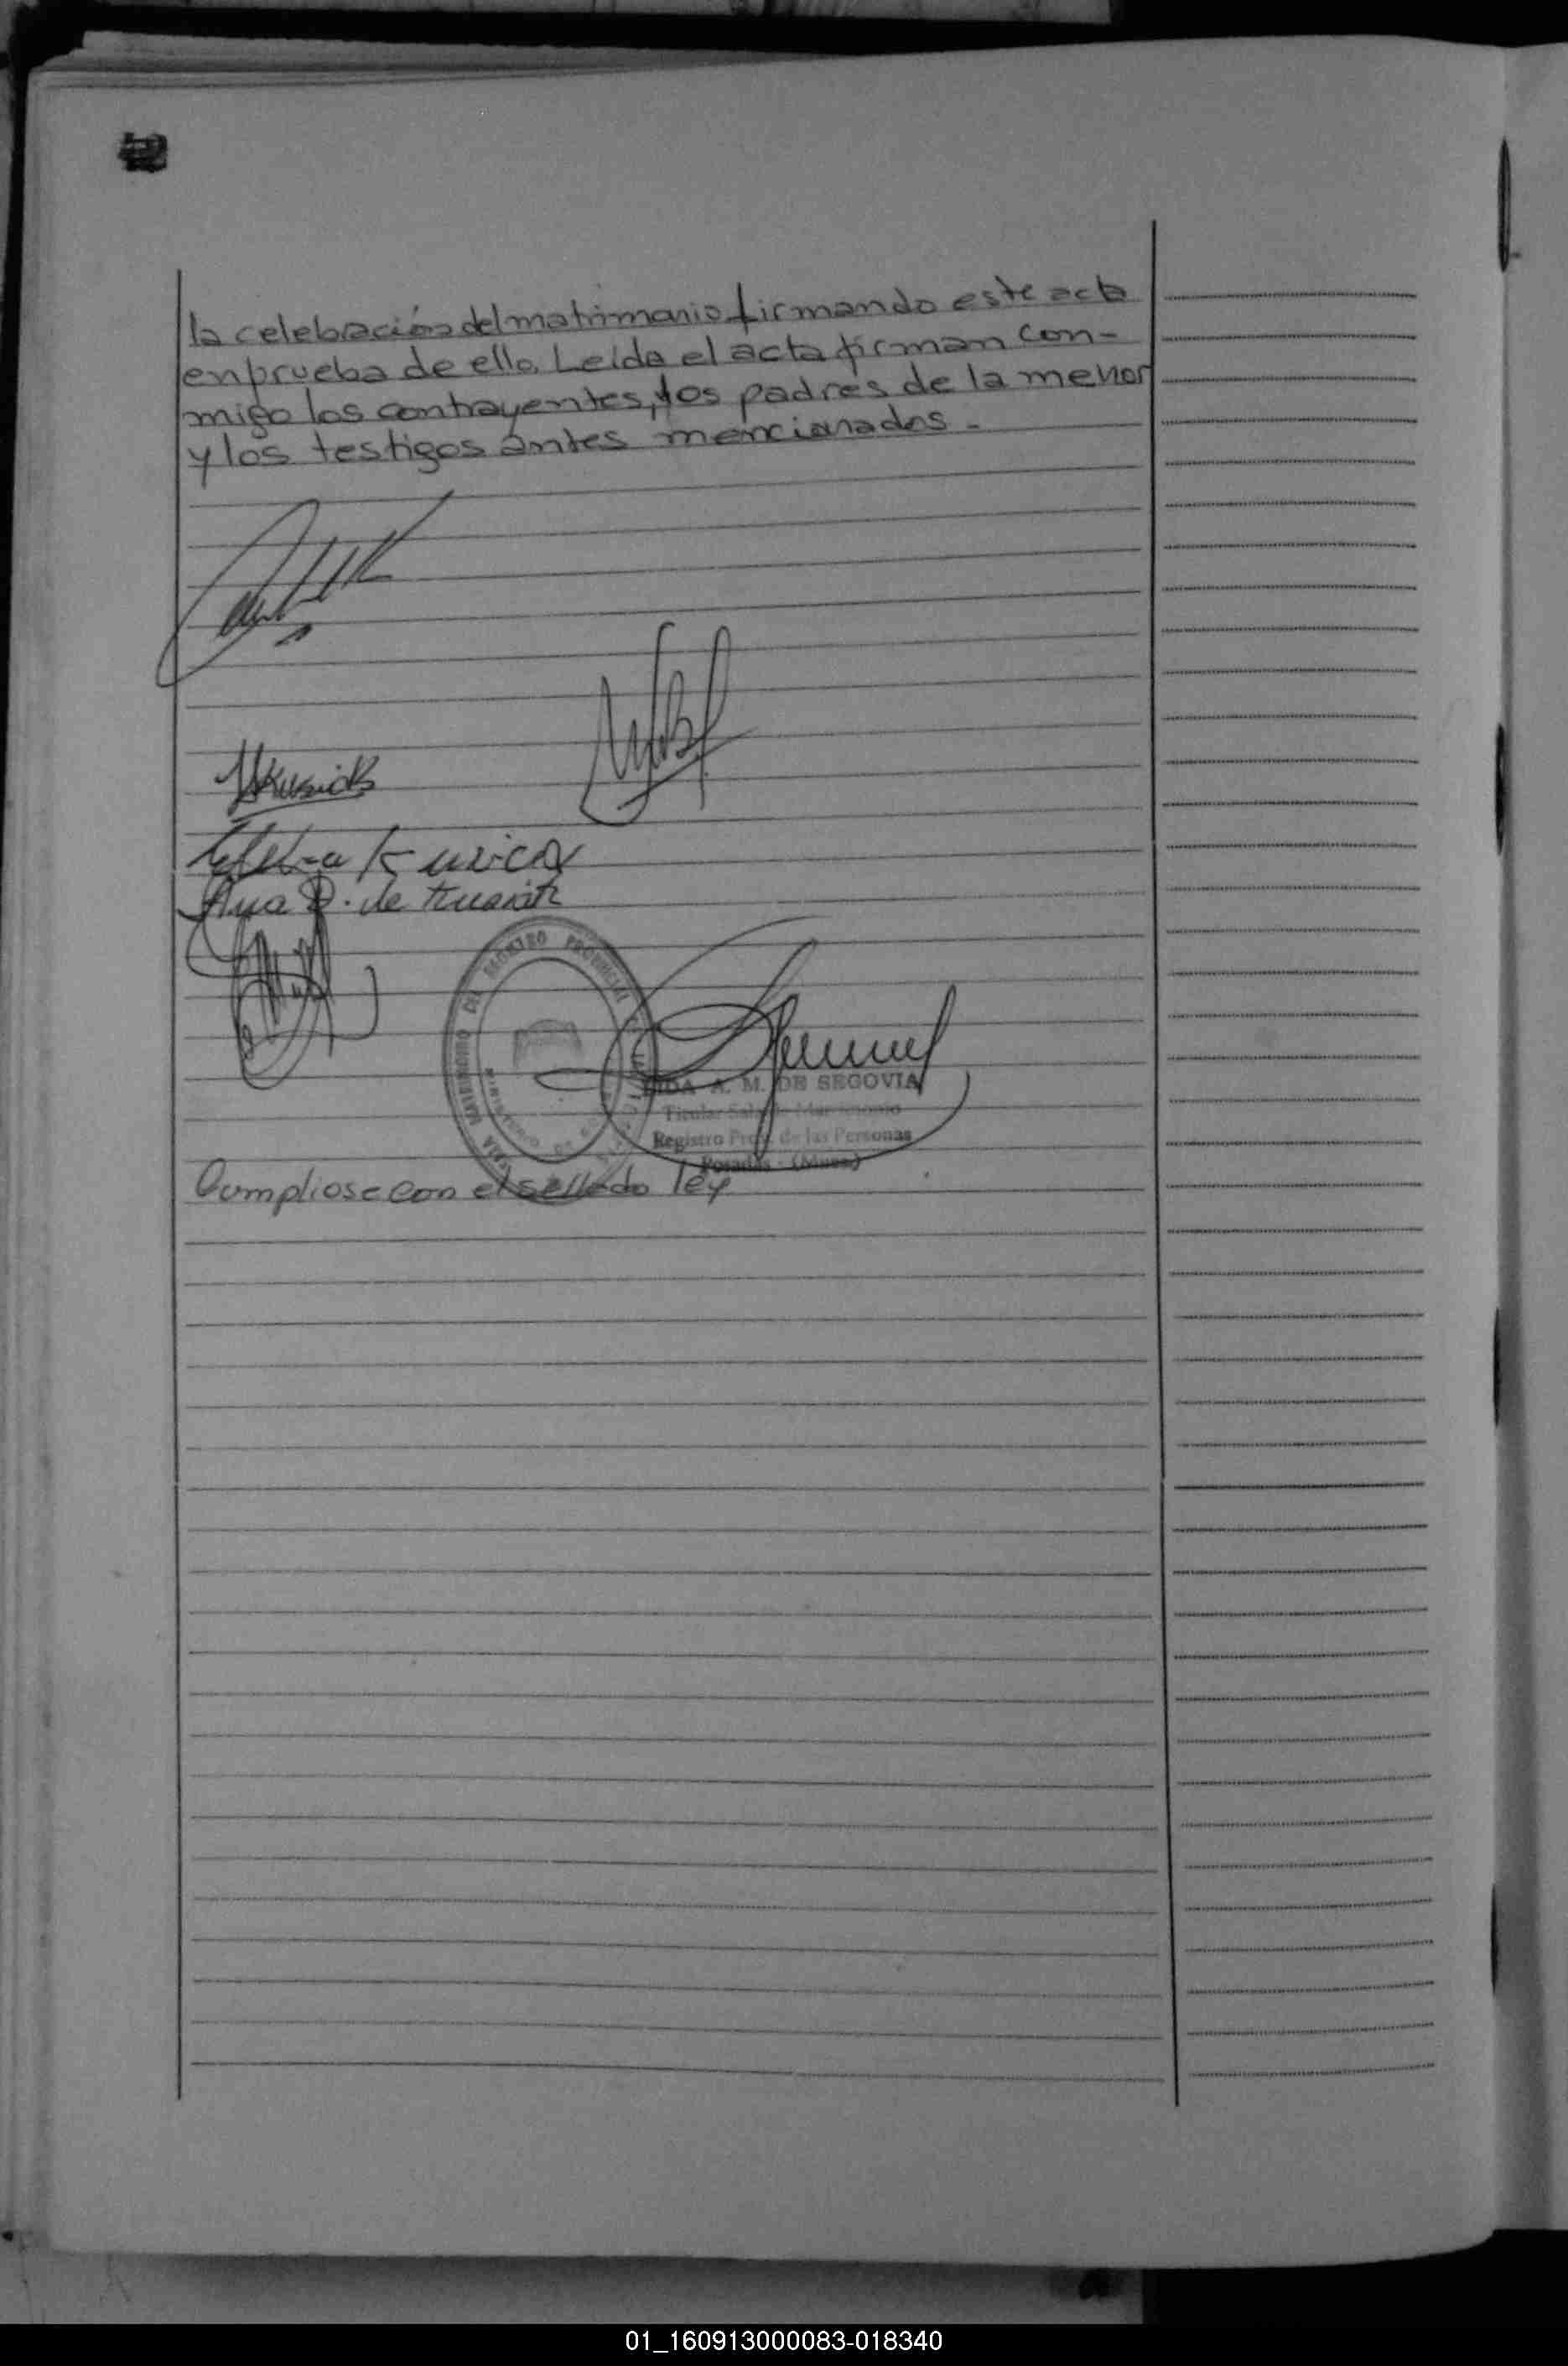 la celebración del matrimonio firmando este acta
en prueba de ello. Leída el acta firman con-
migo los contrayentes, los padres de la menor
y los testigos antes mencionados.-
Ana de
REGISTRO PROVINCIAL
A. M. DE SEGOVIA
Titular Sala de Matrimonio
Registro Prov. de las Personas
Posadas - (Mnes)
Cumpliose con el sellado ley
01_160913000083-018340